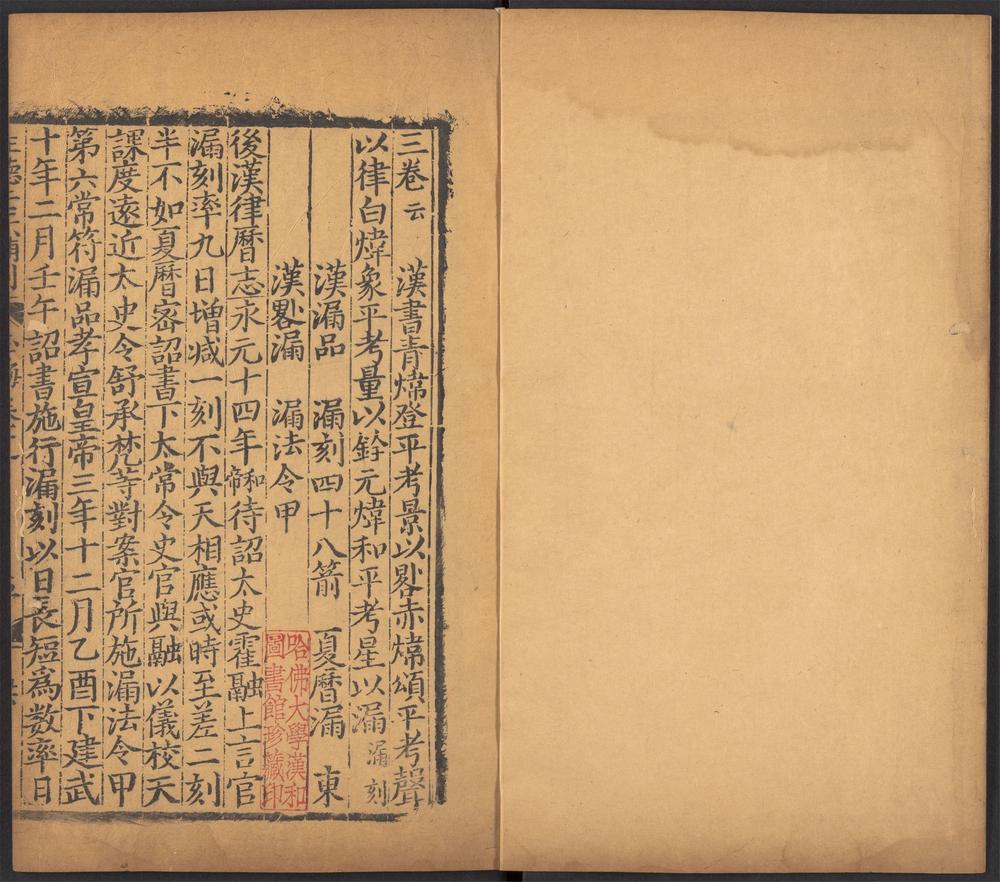 三卷云　漢書青煒登平考景以晷赤煒頌平考聲
以律白煒象平考量以銓元煒和平考星以漏漏刻
漢漏品　漏刻四十八箭　夏曆漏　東
漢晷漏　漏法令甲
後漢律曆志永元十四年和帝待詔太史霍融上言官
漏刻率九日增減一刻不與天相應或時至差二刻
半不如夏曆密詔書下太常令史官與融以儀校天
課度遠近太史令舒承梵等對案官所施漏法令甲
第六常符漏品孝宣皇帝三年十二月乙酉下建武
十年二月壬午詔書施行漏刻以日長短爲數率日
哈佛大學漢和
圖書館珍藏印